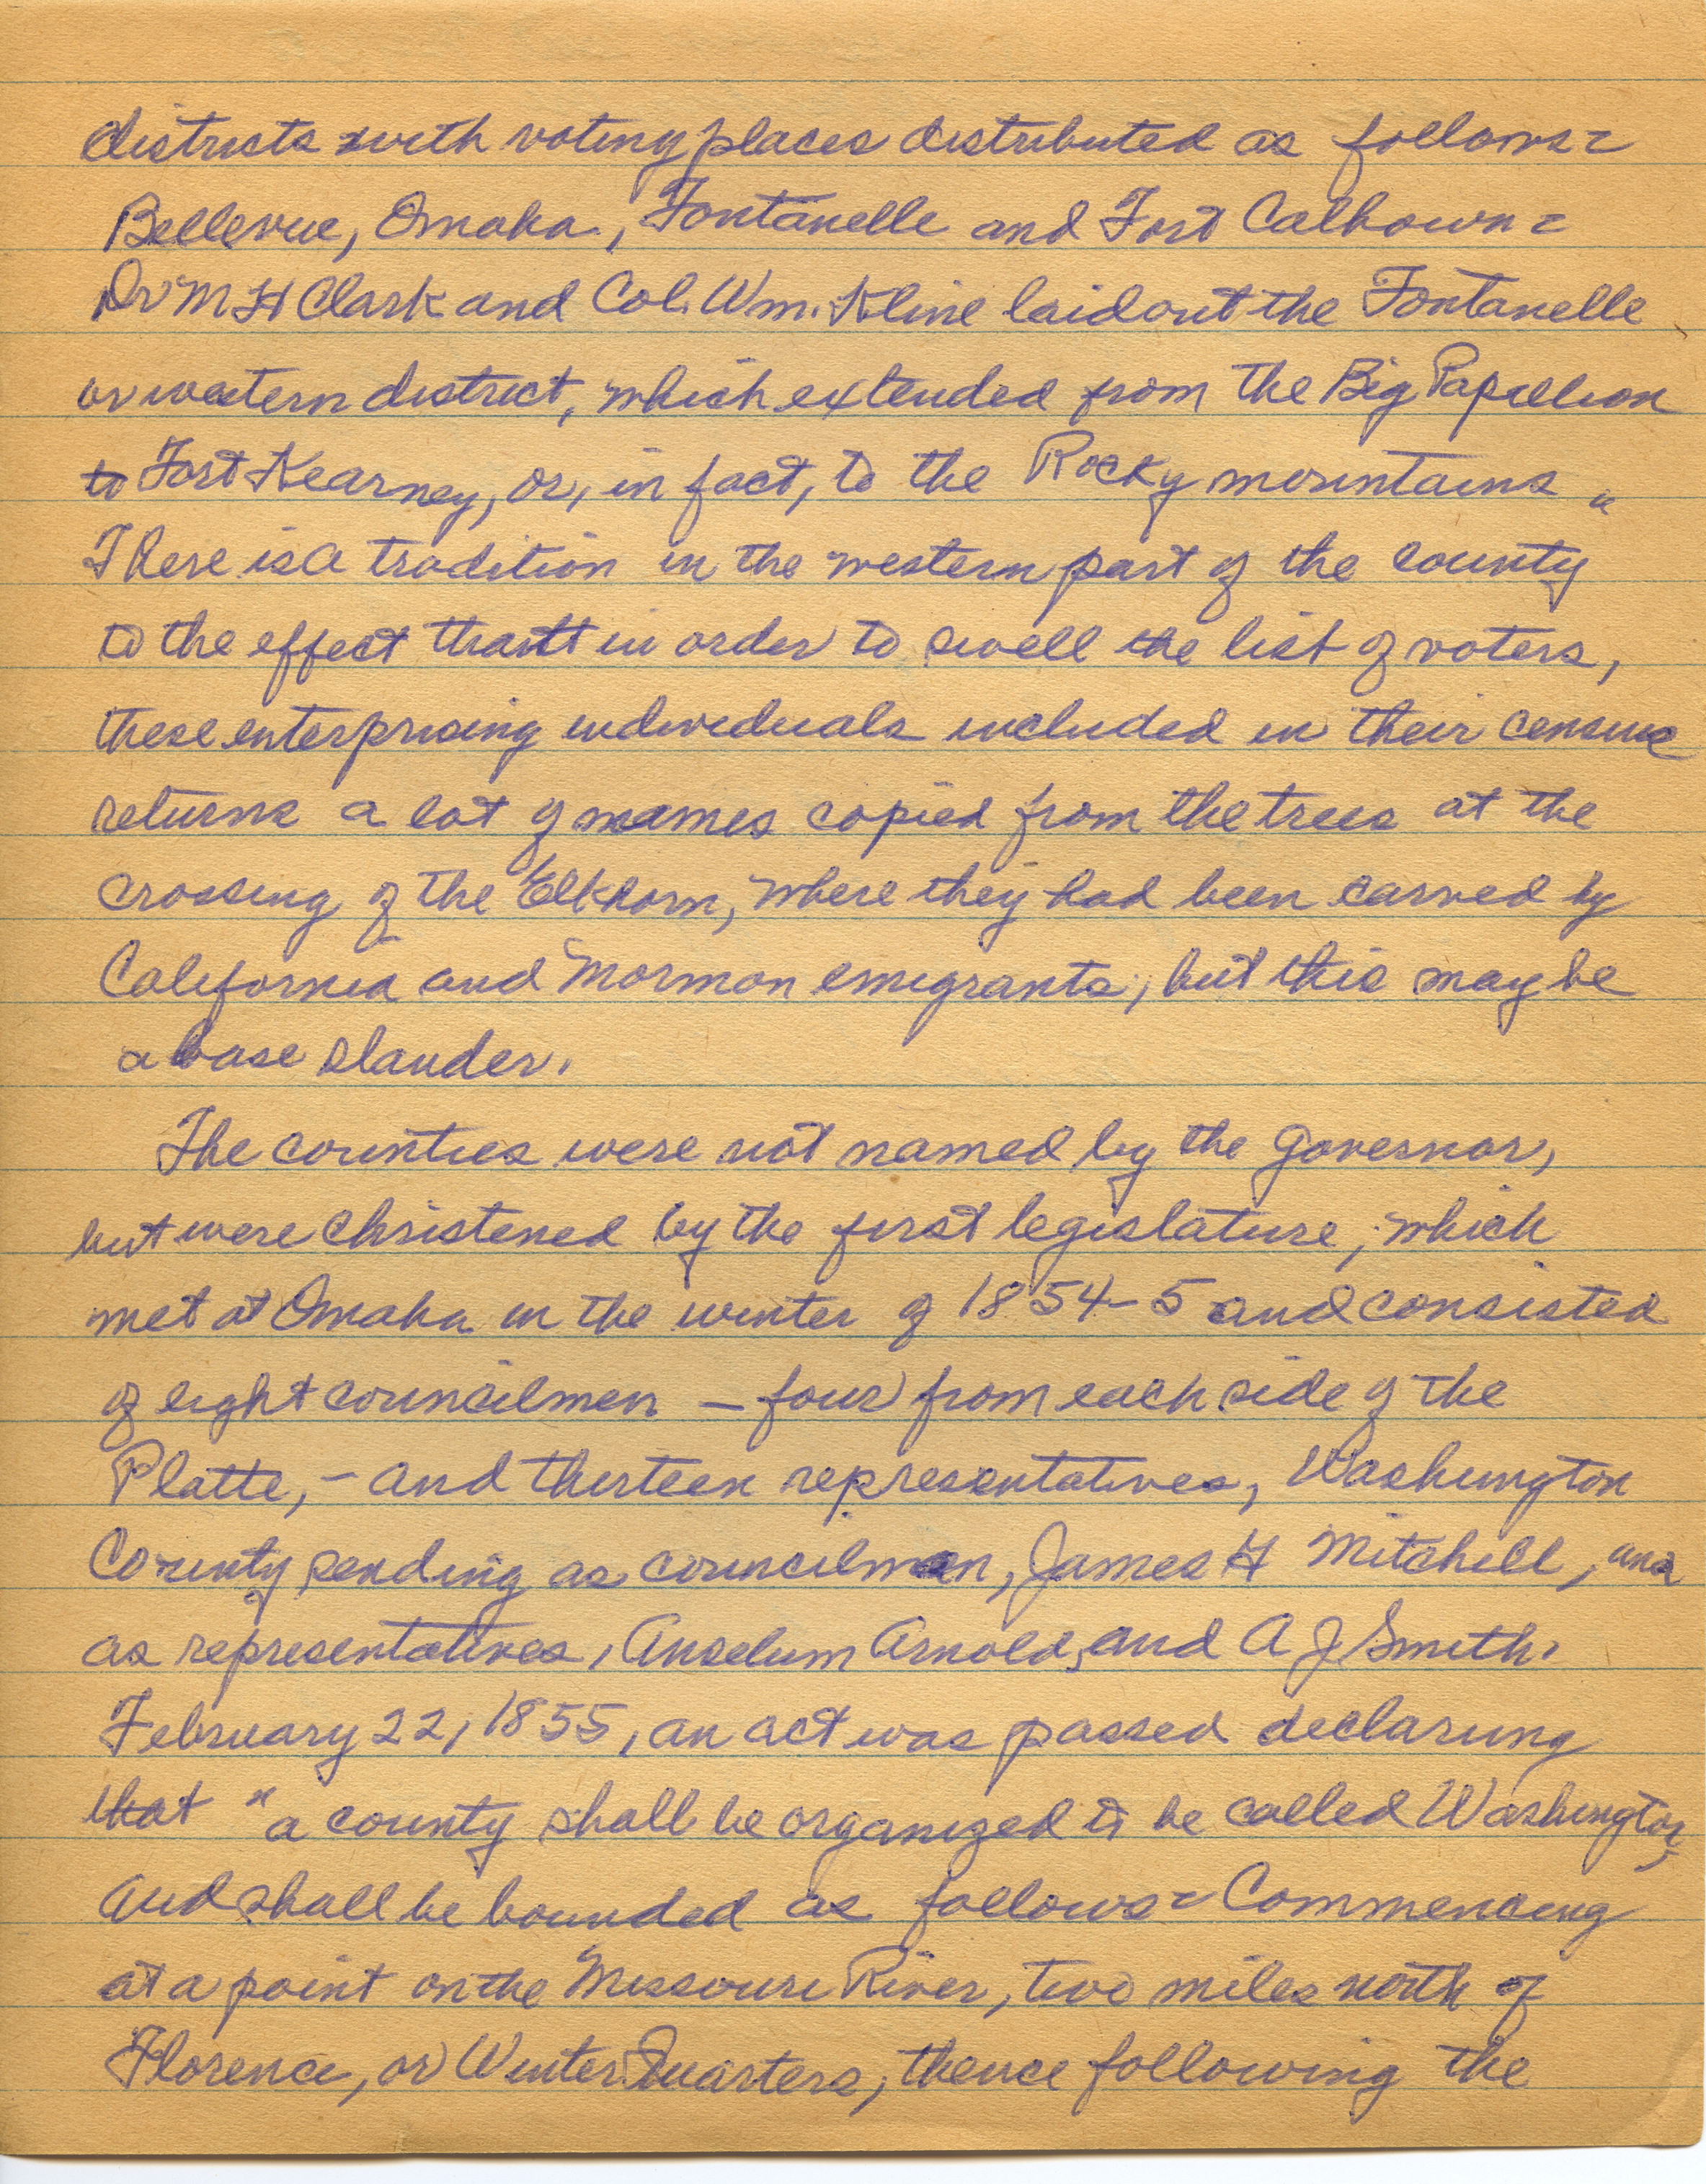 districts with voting places distributed as follows=
Bellevue, Omaha, Fontanelle and Fort Calhown=
Dr M H Clark and Col. Wm. Kline laid out the Fontanelle
or western district, which extended from the Big Papillion
to Fort Kearney, or, in fact, to the Rocky mountains "
There is a tradition in the western part of the county
to the effect that in order to swell the list of voters,
these enterprising individuals included in their census
returns a lot of names copied from the trees at the
crossing of the Elkhorn, where they had been carved by
California and Mormon emigrants; but this may be
a base slander.
The counties were not named by the Governor,
but were christened by the first legislature, which
met at Omaha in the winter of 1854-5 and consisted
of eight councilmen — four from each side of the
Platte, — and thirteen representatives, Washington
County sending as councilman, James H Mitchell, and
as representatives, Anselum Arnold, and A J Smith.
February 22, 1855, an act was passed declaring
that "a county shall be organized to be called Washington,
and shall be bounded as follows= Commencing
at a point on the Missouri River, two miles north of
Florence, or Winter Quarters; thence following the